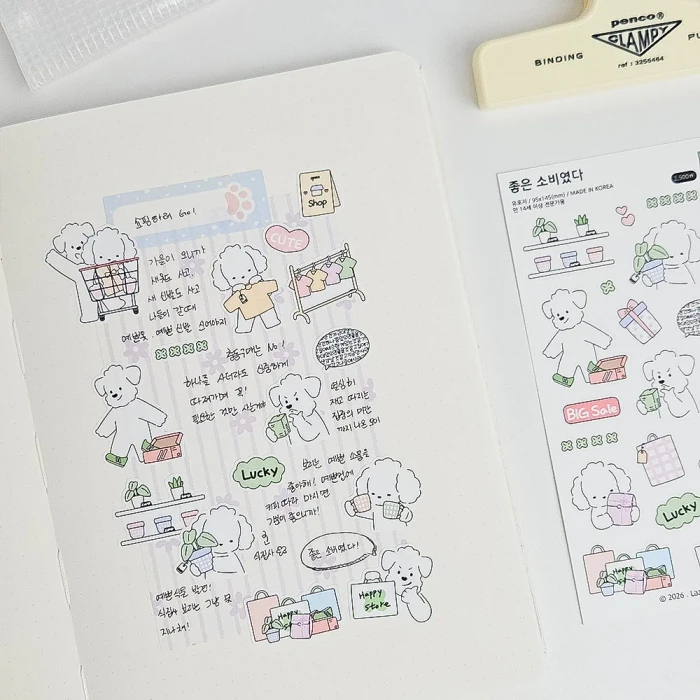 penco®
CLAMPY
BINDING
ref : 3255464
쇼핑하러 Go!
Shop
CUTE
가을이 오니까
새옷도 사고,
새 신발도 사고
나들이 갈 때
예쁜옷 예쁜 신발 신어야지
충동구매는 No!
하나를 사더라도 신중하게
따져가며 꼭!
필요한 것만 사는거야
열심히
자고 따지는
집중의 미간
까지 나온 보이
Lucky
보리는 예쁜 소품을
좋아해! 예쁜컵에
커피 따라 마시면
기분이 좋으니까!
좋은 소비였다!
예쁜 식물 발견!
식집사 보리는 그냥 못
지나쳐!
Happy
Happy
store
좋은 소비였다
유포지 / 95x145(mm) / MADE IN KOREA
만 14세 이상 전문가용
1,500₩
BIG Sale
Lucky
Happy
© 2026.